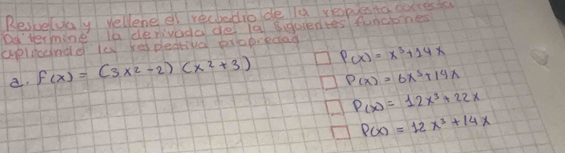 Resuelva y rellene el recuadro de la respuesta correcta
Determine la derivada de la siguientes funciones
aplicando la respectiva propiedad
a. f(x) = (3x² - 2) (x² + 3)
□ P(x) = x³ + 14x
□ P(x) = 6x³ + 14x
□ P(x) = 12x³ + 22x
□ P(x) = 12x³ + 14x